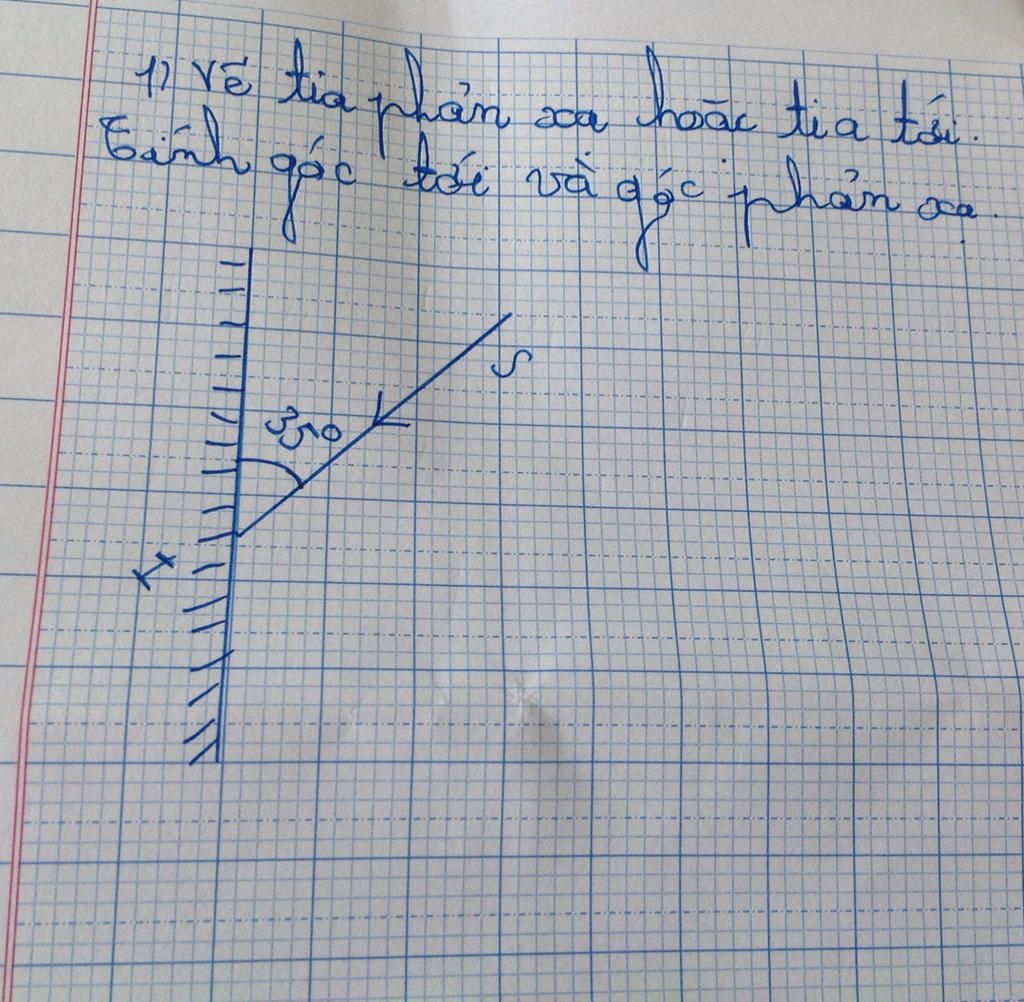 1) Vẽ tia phản xạ hoặc tia tới.
Tính góc tới và góc phản xạ.
S
35°
I